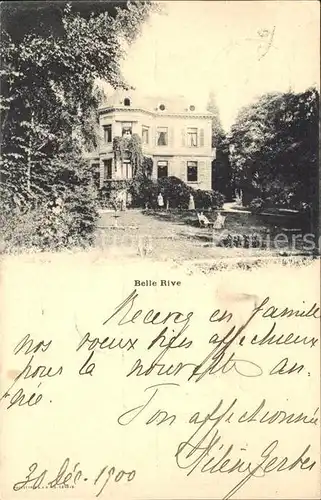 Belle Rive
Recevez en famille
nos voeux bien affectueux
pour la nouvelle an-
née.
Ton affectionnée
Hélène Gerber
30 Déc. 1900